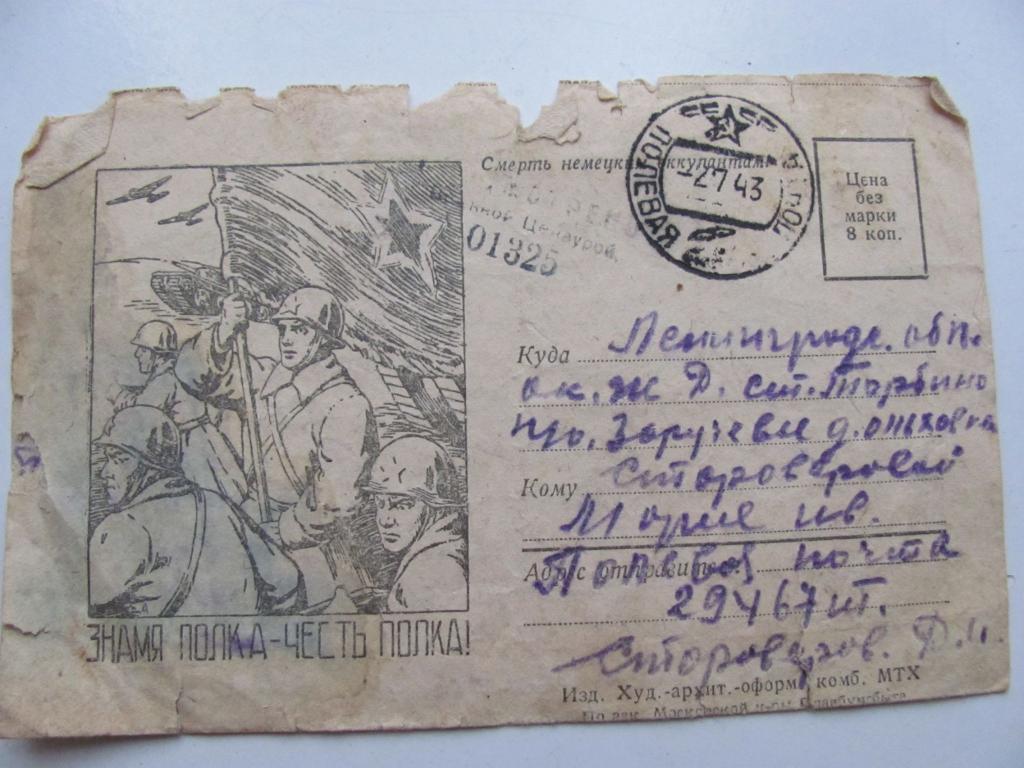 Смерть немецким оккупантам!
Цензурой.
01325
ПОЛЕВАЯ
-2 7 43
Цена
без
марки
8 коп.
Куда Ленинградс. обл.
ок. ж Д. ст. Торбино
п/о. Заручевье д. ольховка
Кому Староверовой
Марие ив.
Адрес отправителя:
Полевая почта
29467
Староверов. Д. И.
ЗНАМЯ ПОЛКА-ЧЕСТЬ ПОЛКА!
Изд. Худ.-архит.-оформ. комб. МТХ
По зак. Московской